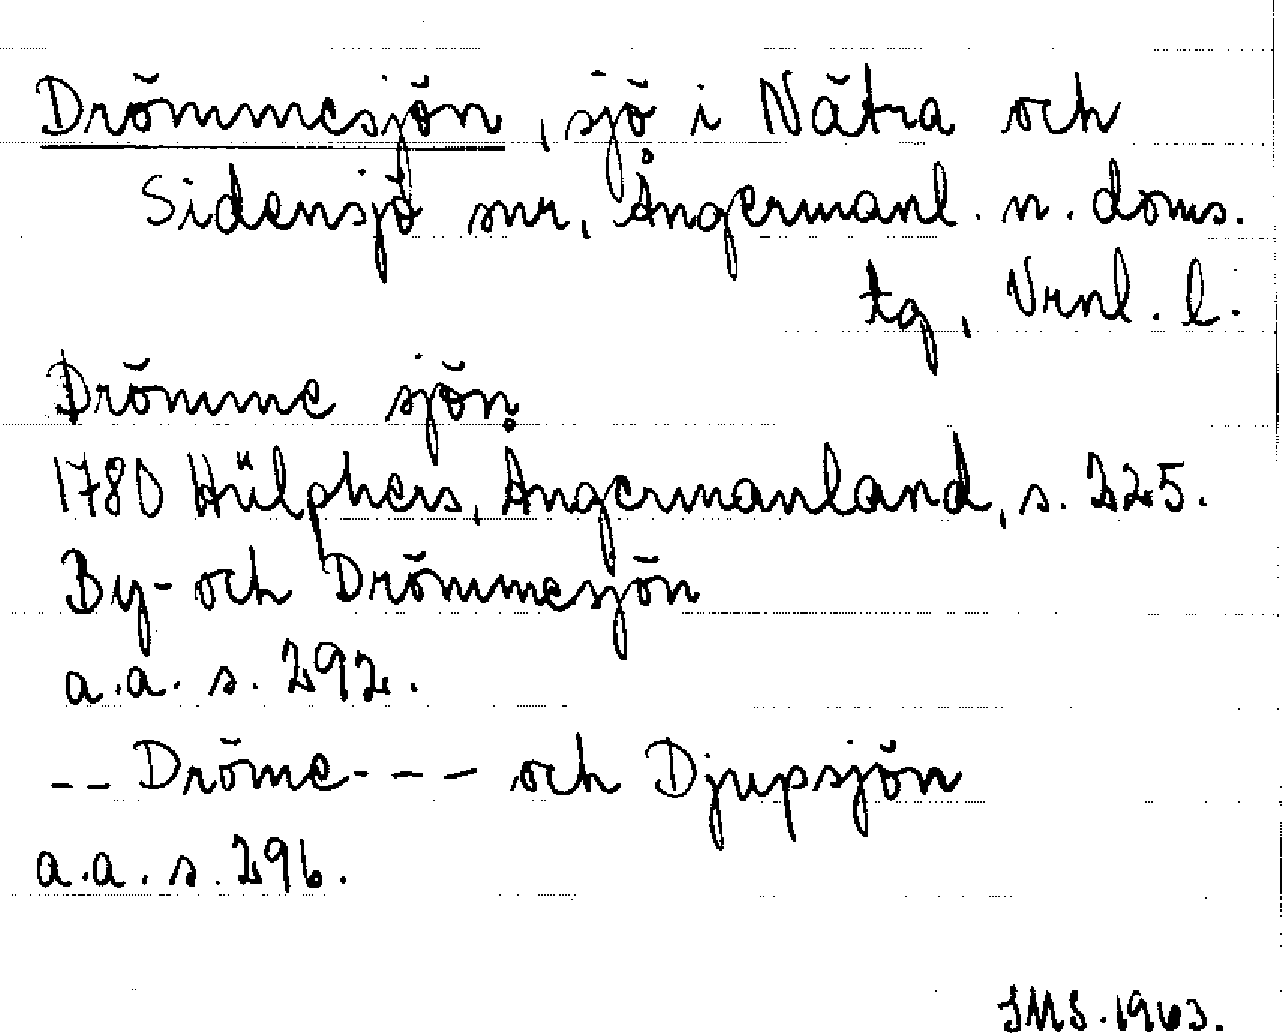 Drömmesjön, sjö i Nätra och
Sidensjö snr, Ångermanl. n. doms.
tg, Vrnl. l.
Drömme sjön
1780 Hülphers, Ångermanland, s. 225.
By- och Drömmesjön
a.a. s. 292.
-- Dröme--- och Djupsjön
a.a. s. 296.
IMS. 1963.